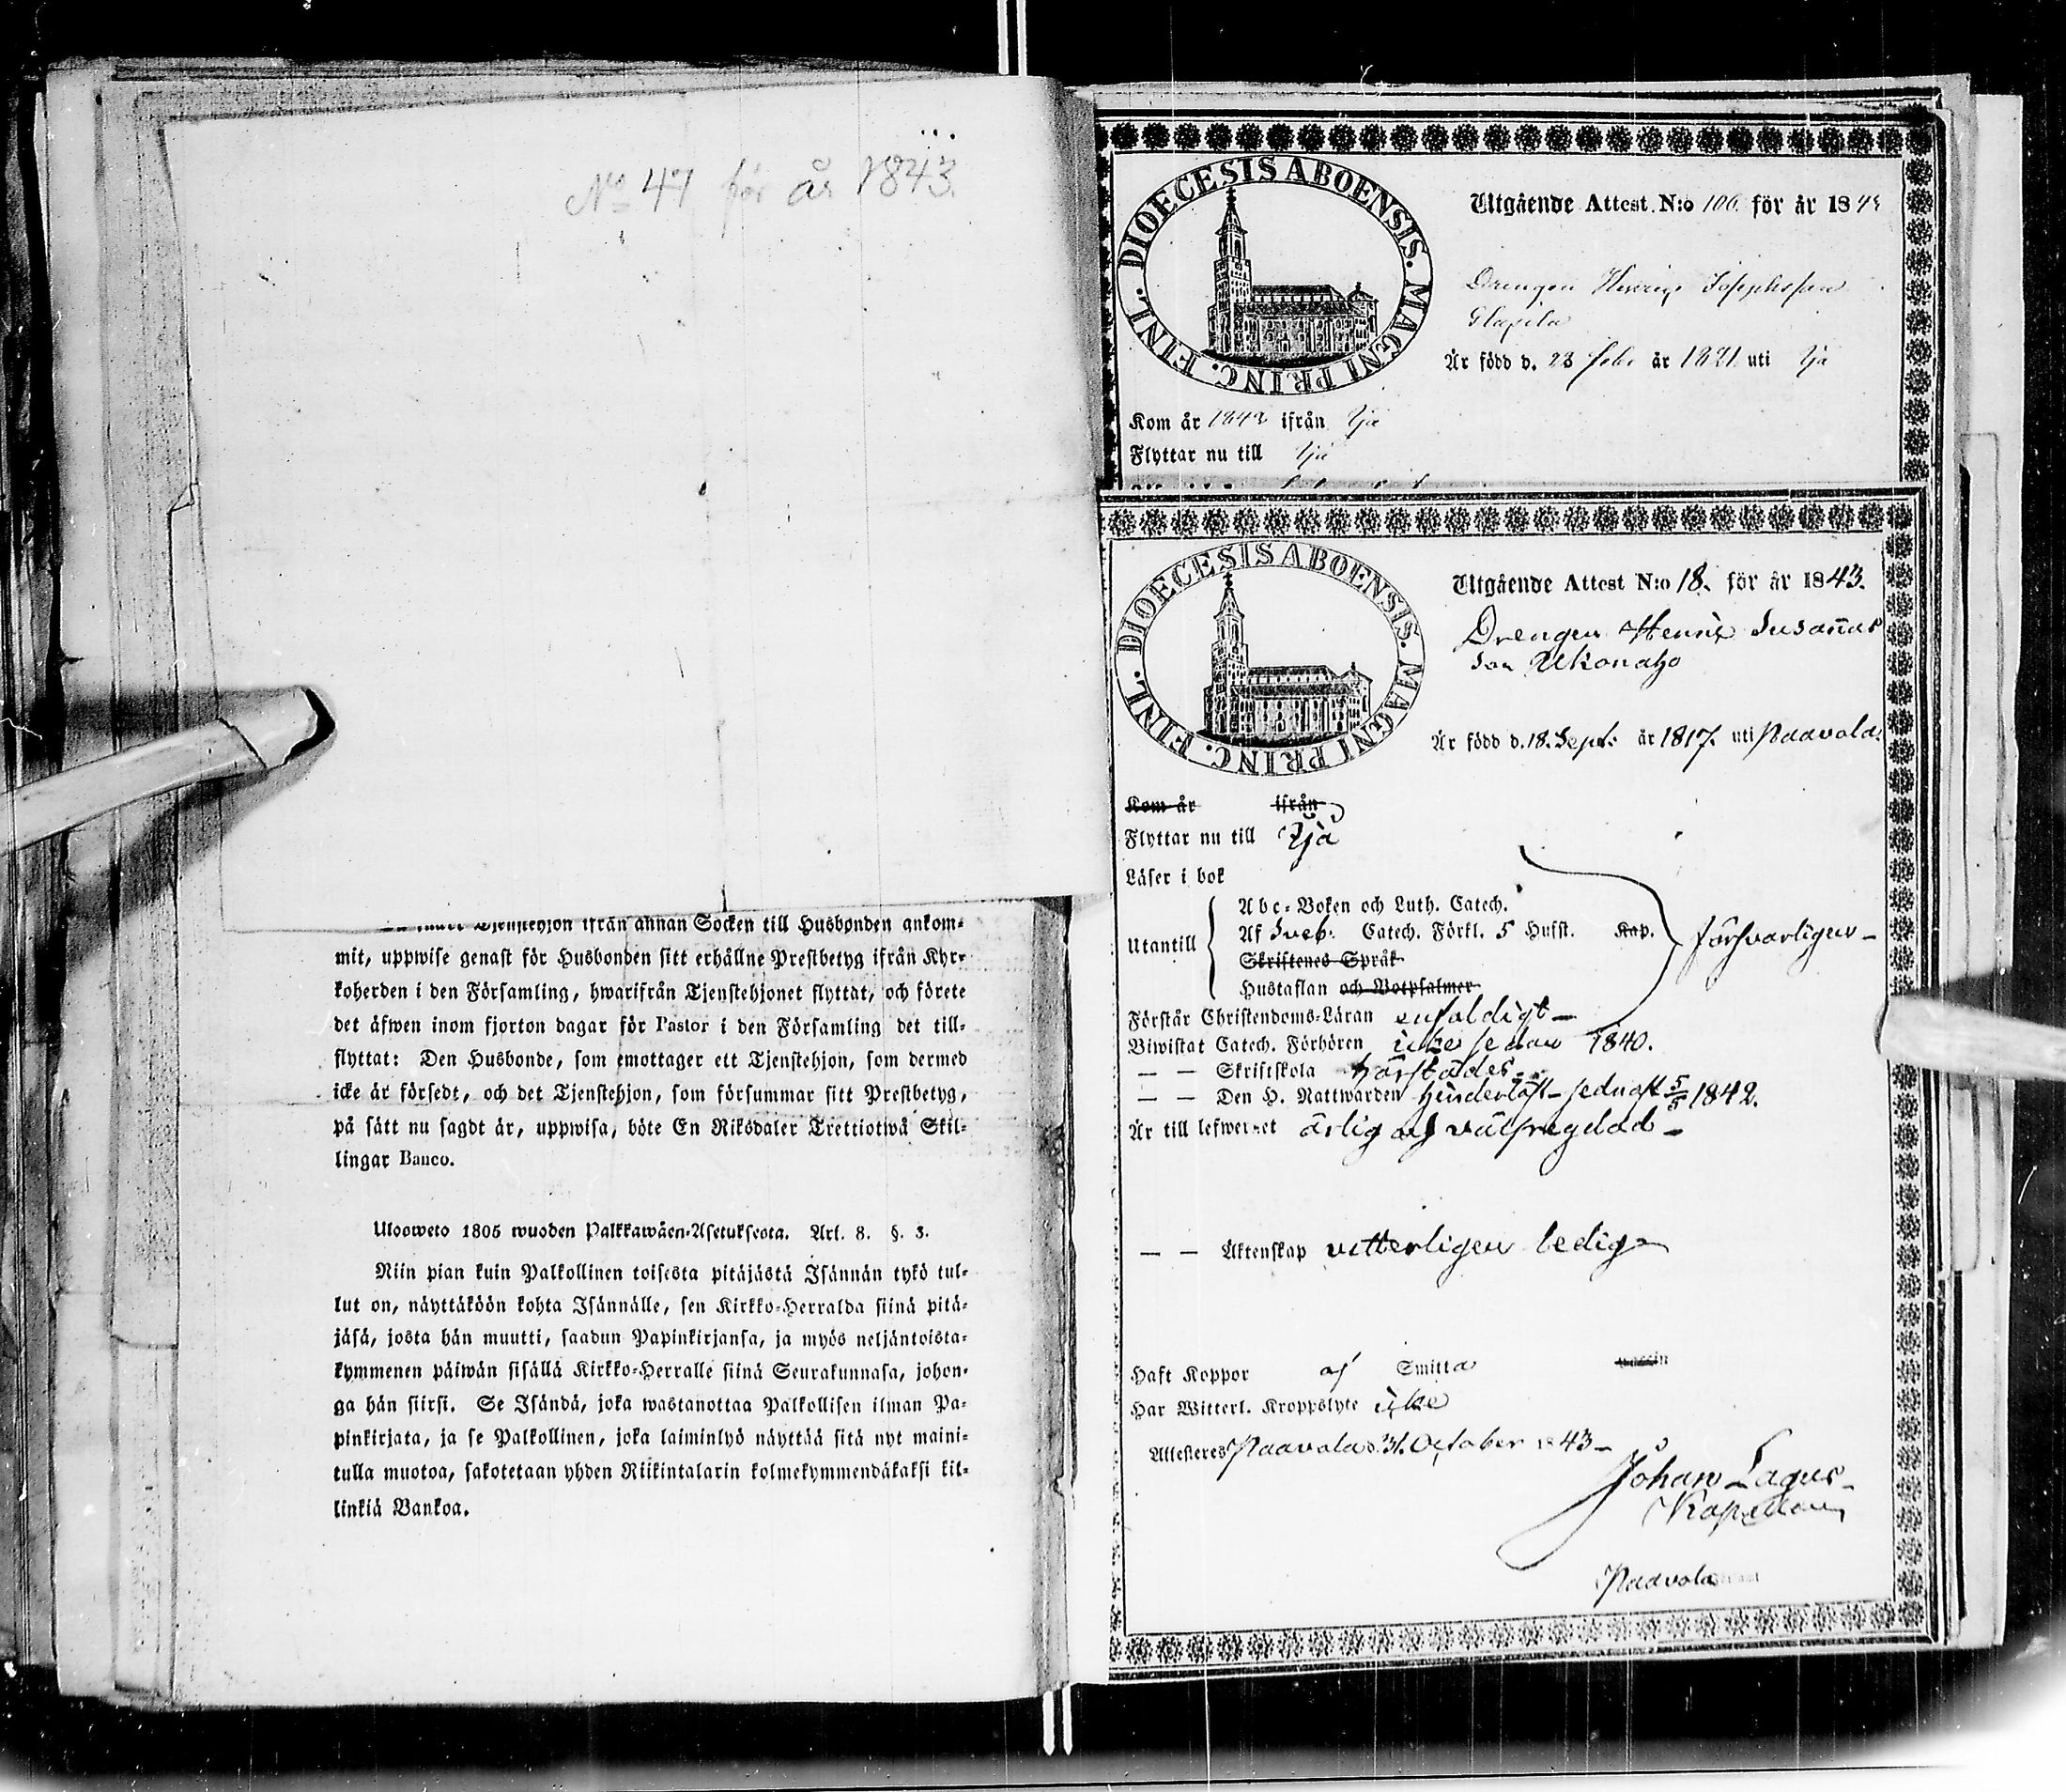 No 47 för år 1843.
Tjenstehjon ifrån annan Socken till Husbonden ankom-
mit, uppwise genast för Husbonden sitt erhållne Prestbetyg ifrån Kyr-
koherden i den Församling, hwarifrån Tjenstehjonet flyttat, och förete
det äfwen inom fjorton dagar för Pastor i den Församling det till-
flyttat: Den Husbonde, som emottager ett Tjenstehjon, som dermed
icke är försedt, och det Tjenstehjon, som försummar sitt Prestbetyg,
på sätt nu sagdt är, uppwisa, böte En Riksdaler Trettiotwå Skil-
lingar Banco.
Ulosweto 1805 wuoden Palkkawäen-Asetuksesta. Art. 8. §. 3.
Niin pian kuin Palkollinen toisesta pitäjästä Isännän tykö tul-
lut on, näyttäköön kohta Isännälle, sen Kirkko-Herralda siinä pitä-
jäsä, josta hän muutti, saadun Papinkirjansa, ja myös neljäntoista-
kymmenen päiwän sisällä Kirkko-Herralle siinä Seurakunnasa, johon-
ga hän siirsi. Se Isändä, joka wastanottaa Palkollisen ilman Pa-
pinkirjata, ja se Palkollinen, joka laiminlyö näyttää sitä nyt maini-
tulla muotoa, sakotetaan yhden Riikintalarin kolmekymmendäkaksi kil-
linkiä Bankoa.
DIOECESIS ABOENSIS. MAGNI PRINC. FINL.
Utgående Attest N:o 106. för år 184
Drengen Henric Josephsson
Är född d. 23 Febr. år 1821 uti Ijå
Kom år 1842 ifrån Ijå
Flyttar nu till Ijå
DIOECESIS ABOENSIS. MAGNI PRINC. FINL.
Utgående Attest N:o 18. för år 1843.
Drengen Henric Susannas
son Ukonaho
Är född d. 18. Sept: år 1817. uti Paavola.
Kom år ifrån
Flyttar nu till Ijå
Läser i bok
Abc-Boken och Luth. Catech.
Utantill Af Sveb. Catech. Förkl. 5 Hufst. Kap. försvarligen
Skriftenes Språk
Hustaflan och Botpsalmer
Förstår Christendoms-Läran enfaldigt
Biwistat Catech. Förhören icke sedan 1840.
— — Skriftskola härstädes.
— — Den H. Nattwarden hinderlöst sednast 5/5 1842.
Är till lefwernet ärlig och välfrägdad
— — Äktenskap vetterligen ledig
Haft Koppor af Smitta
Har Witterl. Kroppslyte icke
Attesteres Paavola d. 31. October 1843
Johan Lagus
Kapellan
Paavola